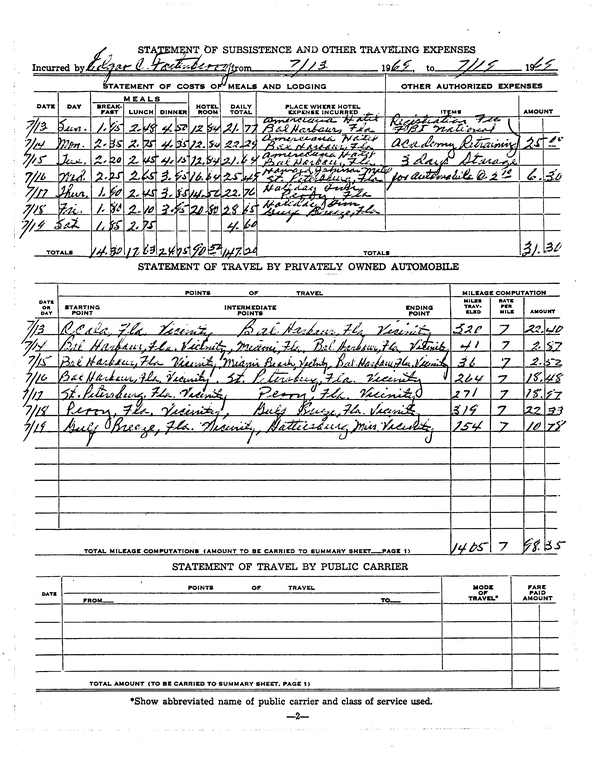 STATEMENT OF SUBSISTENCE AND OTHER TRAVELING EXPENSES
Incurred by Edgar C. Fortenberry from 7/13 1969, to 7/19 1969
STATEMENT OF COSTS OF MEALS AND LODGING OTHER AUTHORIZED EXPENSES
MEALS
DATE DAY BREAK-FAST LUNCH DINNER HOTEL ROOM DAILY TOTAL PLACE WHERE HOTEL EXPENSE INCURRED ITEMS AMOUNT
7/13 Sun. 1.95 2.48 4.50 12.84 21.77 Americana Hotel Bal Harbour, Fla Registration Fee FBI National
7/14 Mon. 2.35 2.75 4.35 12.84 22.29 Americana Hotel Bal Harbour, Fla Academy Retraining 25.00
7/15 Tue. 2.20 2.45 4.15 12.84 21.64 Americana Hotel Bal Harbour, Fla. 3 days Storage
7/16 Wed. 2.25 2.65 3.95 16.64 25.49 St. Petersburg, Fla for automobile @ 2.10 6.30
7/17 Thur. 1.90 2.45 3.85 14.56 22.76 Holiday Inn Perry Fla
7/18 Fri. 1.80 2.10 3.95 20.80 28.65 Holiday Inn Gulf Breeze, Fla
7/19 Sat 1.85 2.75 4.60
TOTALS 14.30 17.63 24.75 90.52 147.20 TOTALS 31.30
STATEMENT OF TRAVEL BY PRIVATELY OWNED AUTOMOBILE
POINTS OF TRAVEL MILEAGE COMPUTATION
DATE OR DAY STARTING POINT INTERMEDIATE POINTS ENDING POINT MILES TRAV-ELED RATE PER MILE AMOUNT
7/13 Ocala, Fla. Vicinity Bal Harbour, Fla Vicinity 320 7 22.40
7/14 Bal Harbour, Fla. Vicinity, Miami, Fla, Bal Harbour, Fla Vicinity 41 7 2.87
7/15 Bal Harbour, Fla Vicinity, Miami Beach, Vicinity, Bal Harbour, Fla. Vicinity 36 7 2.52
7/16 Bal Harbour, Fla. Vicinity, St. Petersburg, Fla. Vicinity 264 7 18.48
7/17 St. Petersburg, Fla. Vicinity Perry, Fla. Vicinity 271 7 18.97
7/18 Perry, Fla, Vicinity, Gulf Breeze, Fla. Vicinity 319 7 22 33
7/19 Gulf Breeze, Fla. Vicinity, Hattiesburg Miss Vicinity 154 7 10 78
TOTAL MILEAGE COMPUTATIONS (AMOUNT TO BE CARRIED TO SUMMARY SHEET PAGE 1) 1405 7 98.35
STATEMENT OF TRAVEL BY PUBLIC CARRIER
DATE POINTS OF TRAVEL MODE OF TRAVEL* FARE PAID AMOUNT
FROM TO
TOTAL AMOUNT (TO BE CARRIED TO SUMMARY SHEET, PAGE 1)
*Show abbreviated name of public carrier and class of service used.
—2—